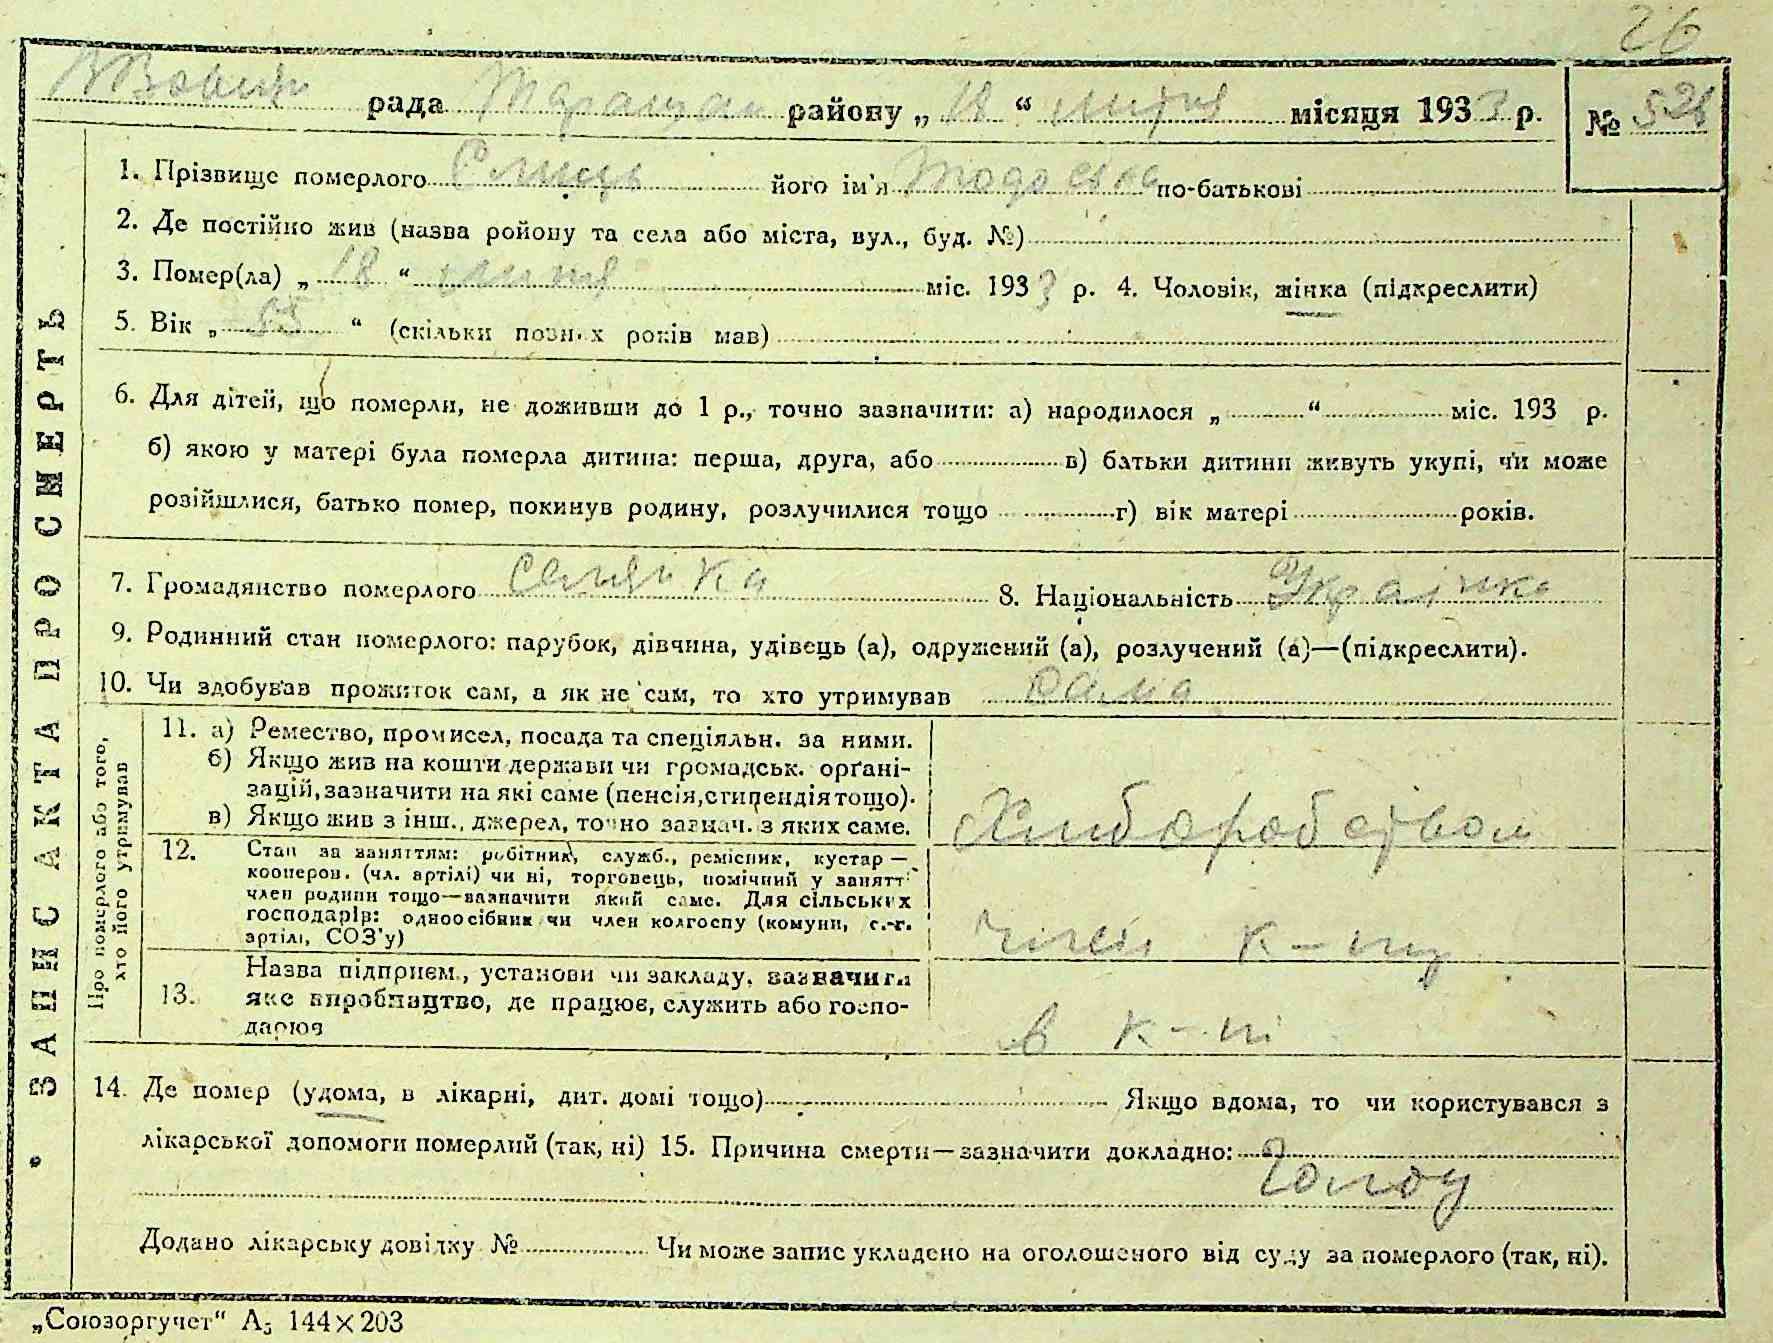 26
рада Таращан району „ 18 “ лютня місяця 1933 р. № 528
1. Прізвище померлого його ім'я Тодоська по-батькові
2. Де постійно жив (назва ройону та села або міста, вул., буд. №)
3. Помер(ла) „ 18 “ лютня міс. 1933 р. 4. Чоловік, жінка (підкреслити)
5. Вік „ 55 “ (скільки повних років мав)
6. Для дітей, що померли, не доживши до 1 р., точно зазначити: а) народилося „ “ міс. 193 р.
б) якою у матері була померла дитина: перша, друга, або в) батьки дитини живуть укупі, чи може
розійшлися, батько помер, покинув родину, розлучилися тощо г) вік матері років.
7. Громадянство померлого селянка 8. Національність Українка
9. Родинний стан померлого: парубок, дівчина, удівець (а), одружений (а), розлучений (а)—(підкреслити).
10. Чи здобував прожиток сам, а як не сам, то хто утримував сама
Про померлого або того,
хто його утримував
11. а) Ремество, промисел, посада та спеціяльн. за ними.
б) Якщо жив на кошти держави чи громадськ. орґані-
зацій, зазначити на які саме (пенсія, стипендія тощо).
в) Якщо жив з інш., джерел, точно зазнач. з яких саме.
Хліборобством
12. Стан за заняттям: робітник, служб., ремісник, кустар —
кооперов. (чл. артілі) чи ні, торговець, помічний у занятті
член родини тощо—вазначити який саме. Для сільських
господарів: одноосібник чи член колгоспу (комуни, с.-г.
артілі, СОЗ'у)
член к-пу
13. Назва підприєм., установи чи закладу, вазначити
яке виробництво, де працює, служить або госпо-
дарює
в к-пі
14. Де помер (удома, в лікарні, дит. домі тощо) Якщо вдома, то чи користувався з
лікарської допомоги померлий (так, ні) 15. Причина смерти—зазначити докладно:
Голоду
Додано лікарську довідку № Чи може запис укладено на оголошеного від суду за померлого (так, ні).
ЗАПИС АКТА ПРО СМЕРТЬ
„Союзоргучет“ А5 144×203